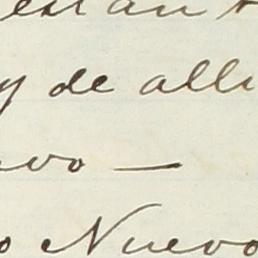 estan
y de alli
evo —
o Nuevo